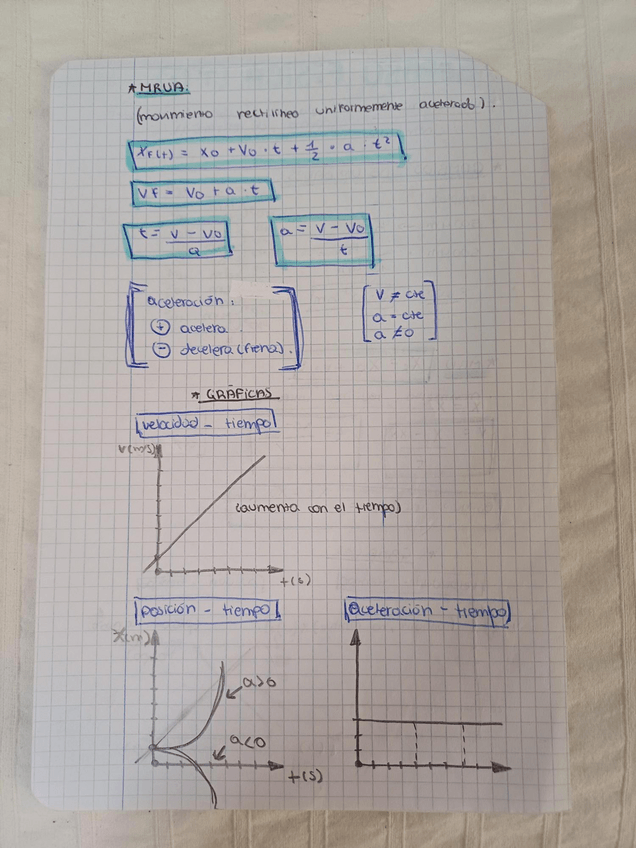 * MRUA:
(movimiento rectilíneo uniformemente acelerado).
XF(t) = X0 + V0 · t + 1/2 · a · t²
VF = V0 + a · t
t = V - V0 / a
a = V - V0 / t
aceleración:
+ acelera.
- decelera (frena).
V ≠ cte
a = cte
a ≠ 0
* GRÁFICAS
velocidad - tiempo
V(m/s)
(aumenta con el tiempo)
t(s)
posición - tiempo
aceleración - tiempo
X(m)
a>0
a<0
t(s)